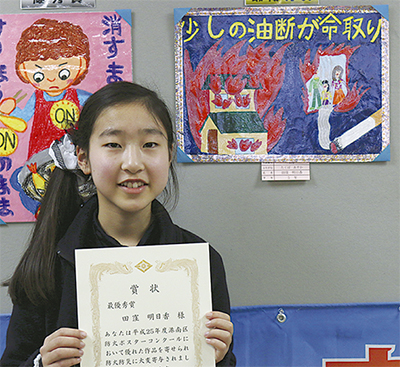 消すま
ON
ON
少しの油断が命取り
賞状
最優秀賞
田窪 明日香 様
あなたは平成25年度港南区
防火ポスターコンクール
において優れた作品を寄せられ
防火防災に大変寄与されまし